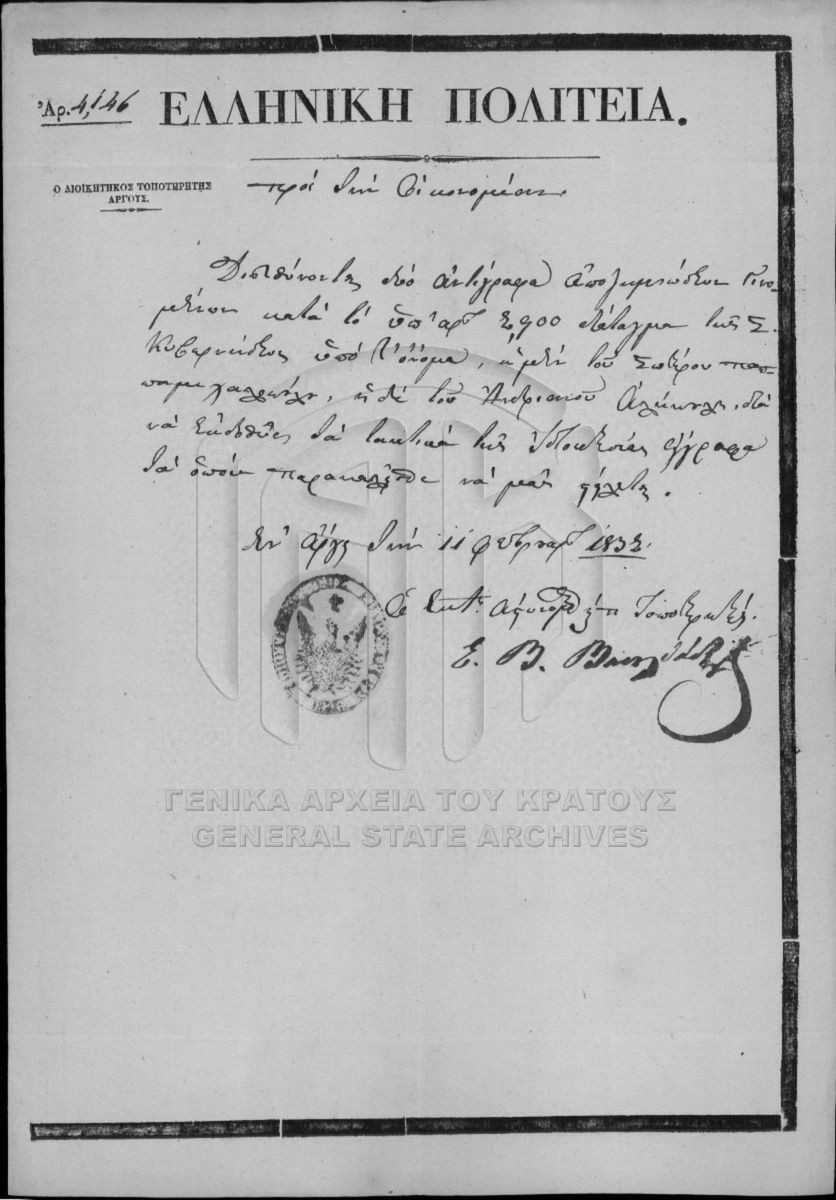 Ἀρ. 4,146 ΕΛΛΗΝΙΚΗ ΠΟΛΙΤΕΙΑ.
Ο ΔΙΟΙΚΗΤΙΚΟΣ ΤΟΠΟΤΗΡΗΤΗΣ
ΑΡΓΟΥΣ.
πρὸς τὴν Οἰκονομίαν.
Διευθύνονται δύο ἀντίγραφα ἀποζημιώσεων γινο-
μένων κατὰ τὸ ὑπ' ἀρ. 2900 διάταγμα τῆς Σ.
Κυβερνήσεως ὑπὸ τ' ὄνομα, ἡ μὲν τοῦ Σωτήρου παπ-
ἡ δὲ τοῦ Ἀνδριανοῦ διὰ
νὰ ἐκδοθῶσι τὰ τακτικὰ τῆς ἰδιοκτησίας ἔγγραφα
τὰ ὁποῖα παρακαλεῖσθε νὰ μᾶς
Ἐν Ἄργει τὴν 11 φεβρουαρ 1832.
Ὁ Τοποτηρητής.
Ε. Β.
ΓΕΝΙΚΑ ΑΡΧΕΙΑ ΤΟΥ ΚΡΑΤΟΥΣ
GENERAL STATE ARCHIVES